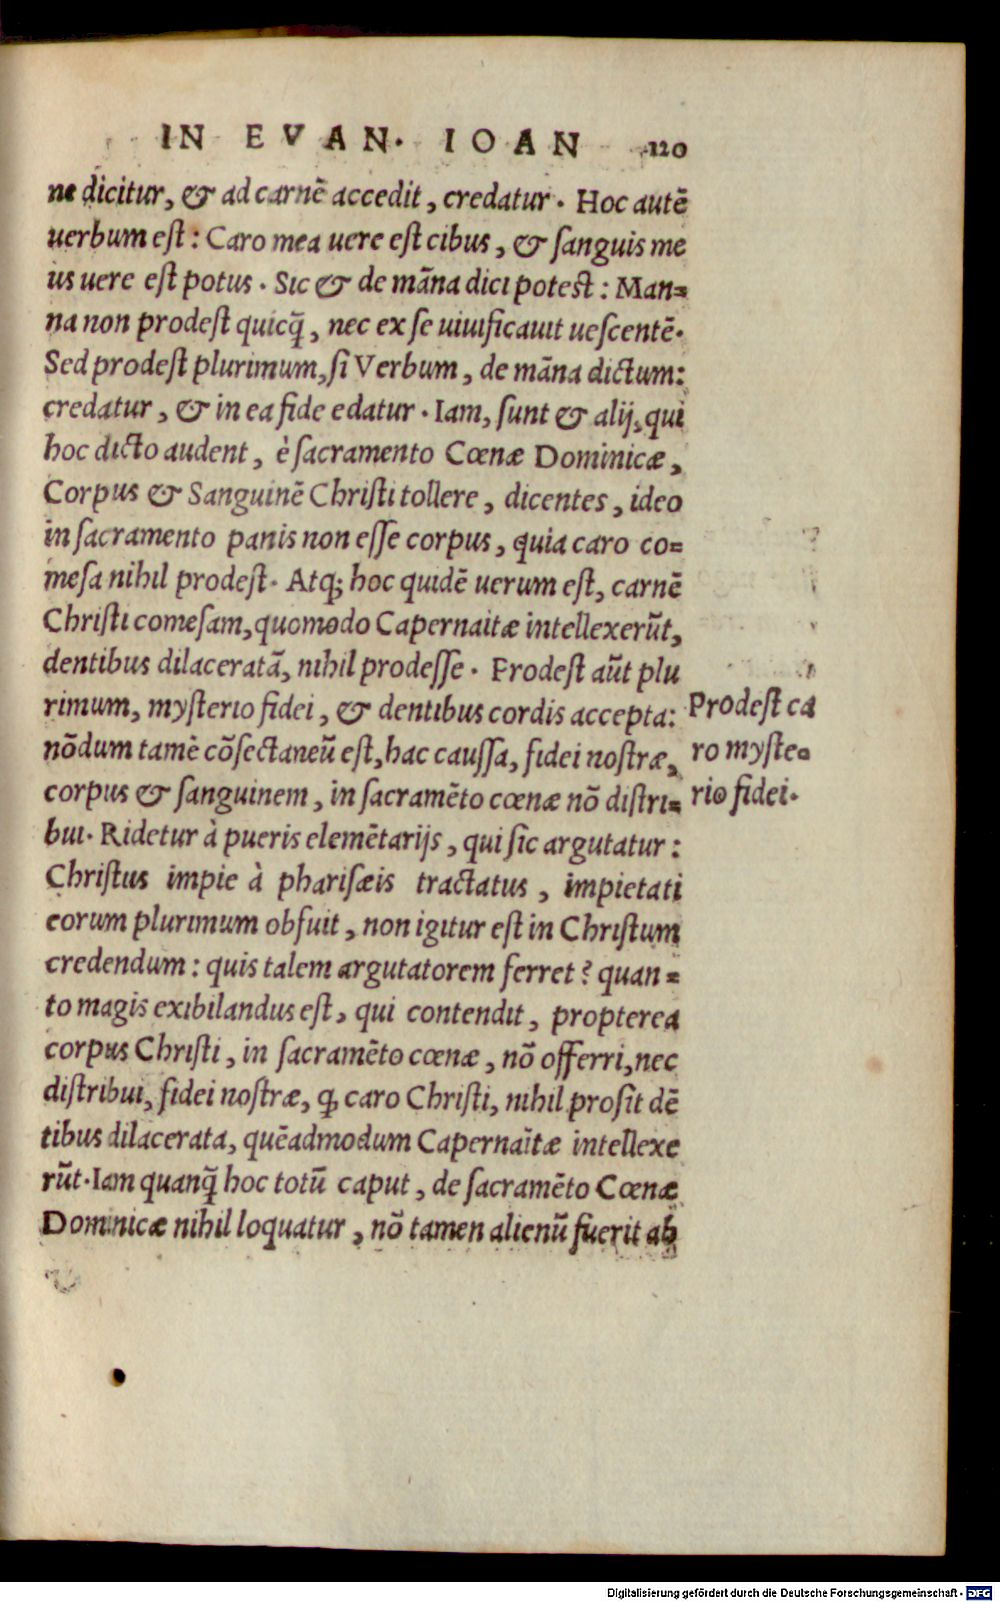 IN EVAN. IOAN 120
ne dicitur, & ad carnē accedit, credatur. Hoc autē
uerbum est: Caro mea uere est cibus, & sanguis me
us uere est potus. Sic & de māna dici potest: Man=
na non prodest quicq̄, nec ex se uiuificauit uescentē.
Sed prodest plurimum, si Verbum, de māna dictum:
credatur, & in ea fide edatur. Iam, sunt & alij, qui
hoc dicto audent, è sacramento Cœnæ Dominicæ,
Corpus & Sanguinē Christi tollere, dicentes, ideo
in sacramento panis non esse corpus, quia caro co=
mesa nihil prodest. Atq; hoc quidē uerum est, carnē
Christi comesam, quomodo Capernaitæ intellexerūt,
dentibus dilaceratā, nihil prodesse. Prodest aūt plu
rimum, mysterio fidei, & dentibus cordis accepta:
nōdum tamē cōsectaneū est, hac caussa, fidei nostræ,
corpus & sanguinem, in sacramēto cœnæ nō distri=
bui. Ridetur à pueris elemētarijs, qui sic argutatur:
Christus impie à pharisæis tractatus, impietati
eorum plurimum obfuit, non igitur est in Christum
credendum: quis talem argutatorem ferret? quan=
to magis exibilandus est, qui contendit, propterea
corpus Christi, in sacramēto cœnæ, nō offerri, nec
distribui, fidei nostræ, ꝙ caro Christi, nihil prosit dē
tibus dilacerata, quēadmodum Capernaitæ intellexe
rūt. Iam quanq̄ hoc totū caput, de sacramēto Cœnæ
Dominicæ nihil loquatur, nō tamen alienū fuerit ab
Prodest ca
ro myste=
rio fidei.
Digitalisierung gefördert durch die Deutsche Forschungsgemeinschaft - DFG